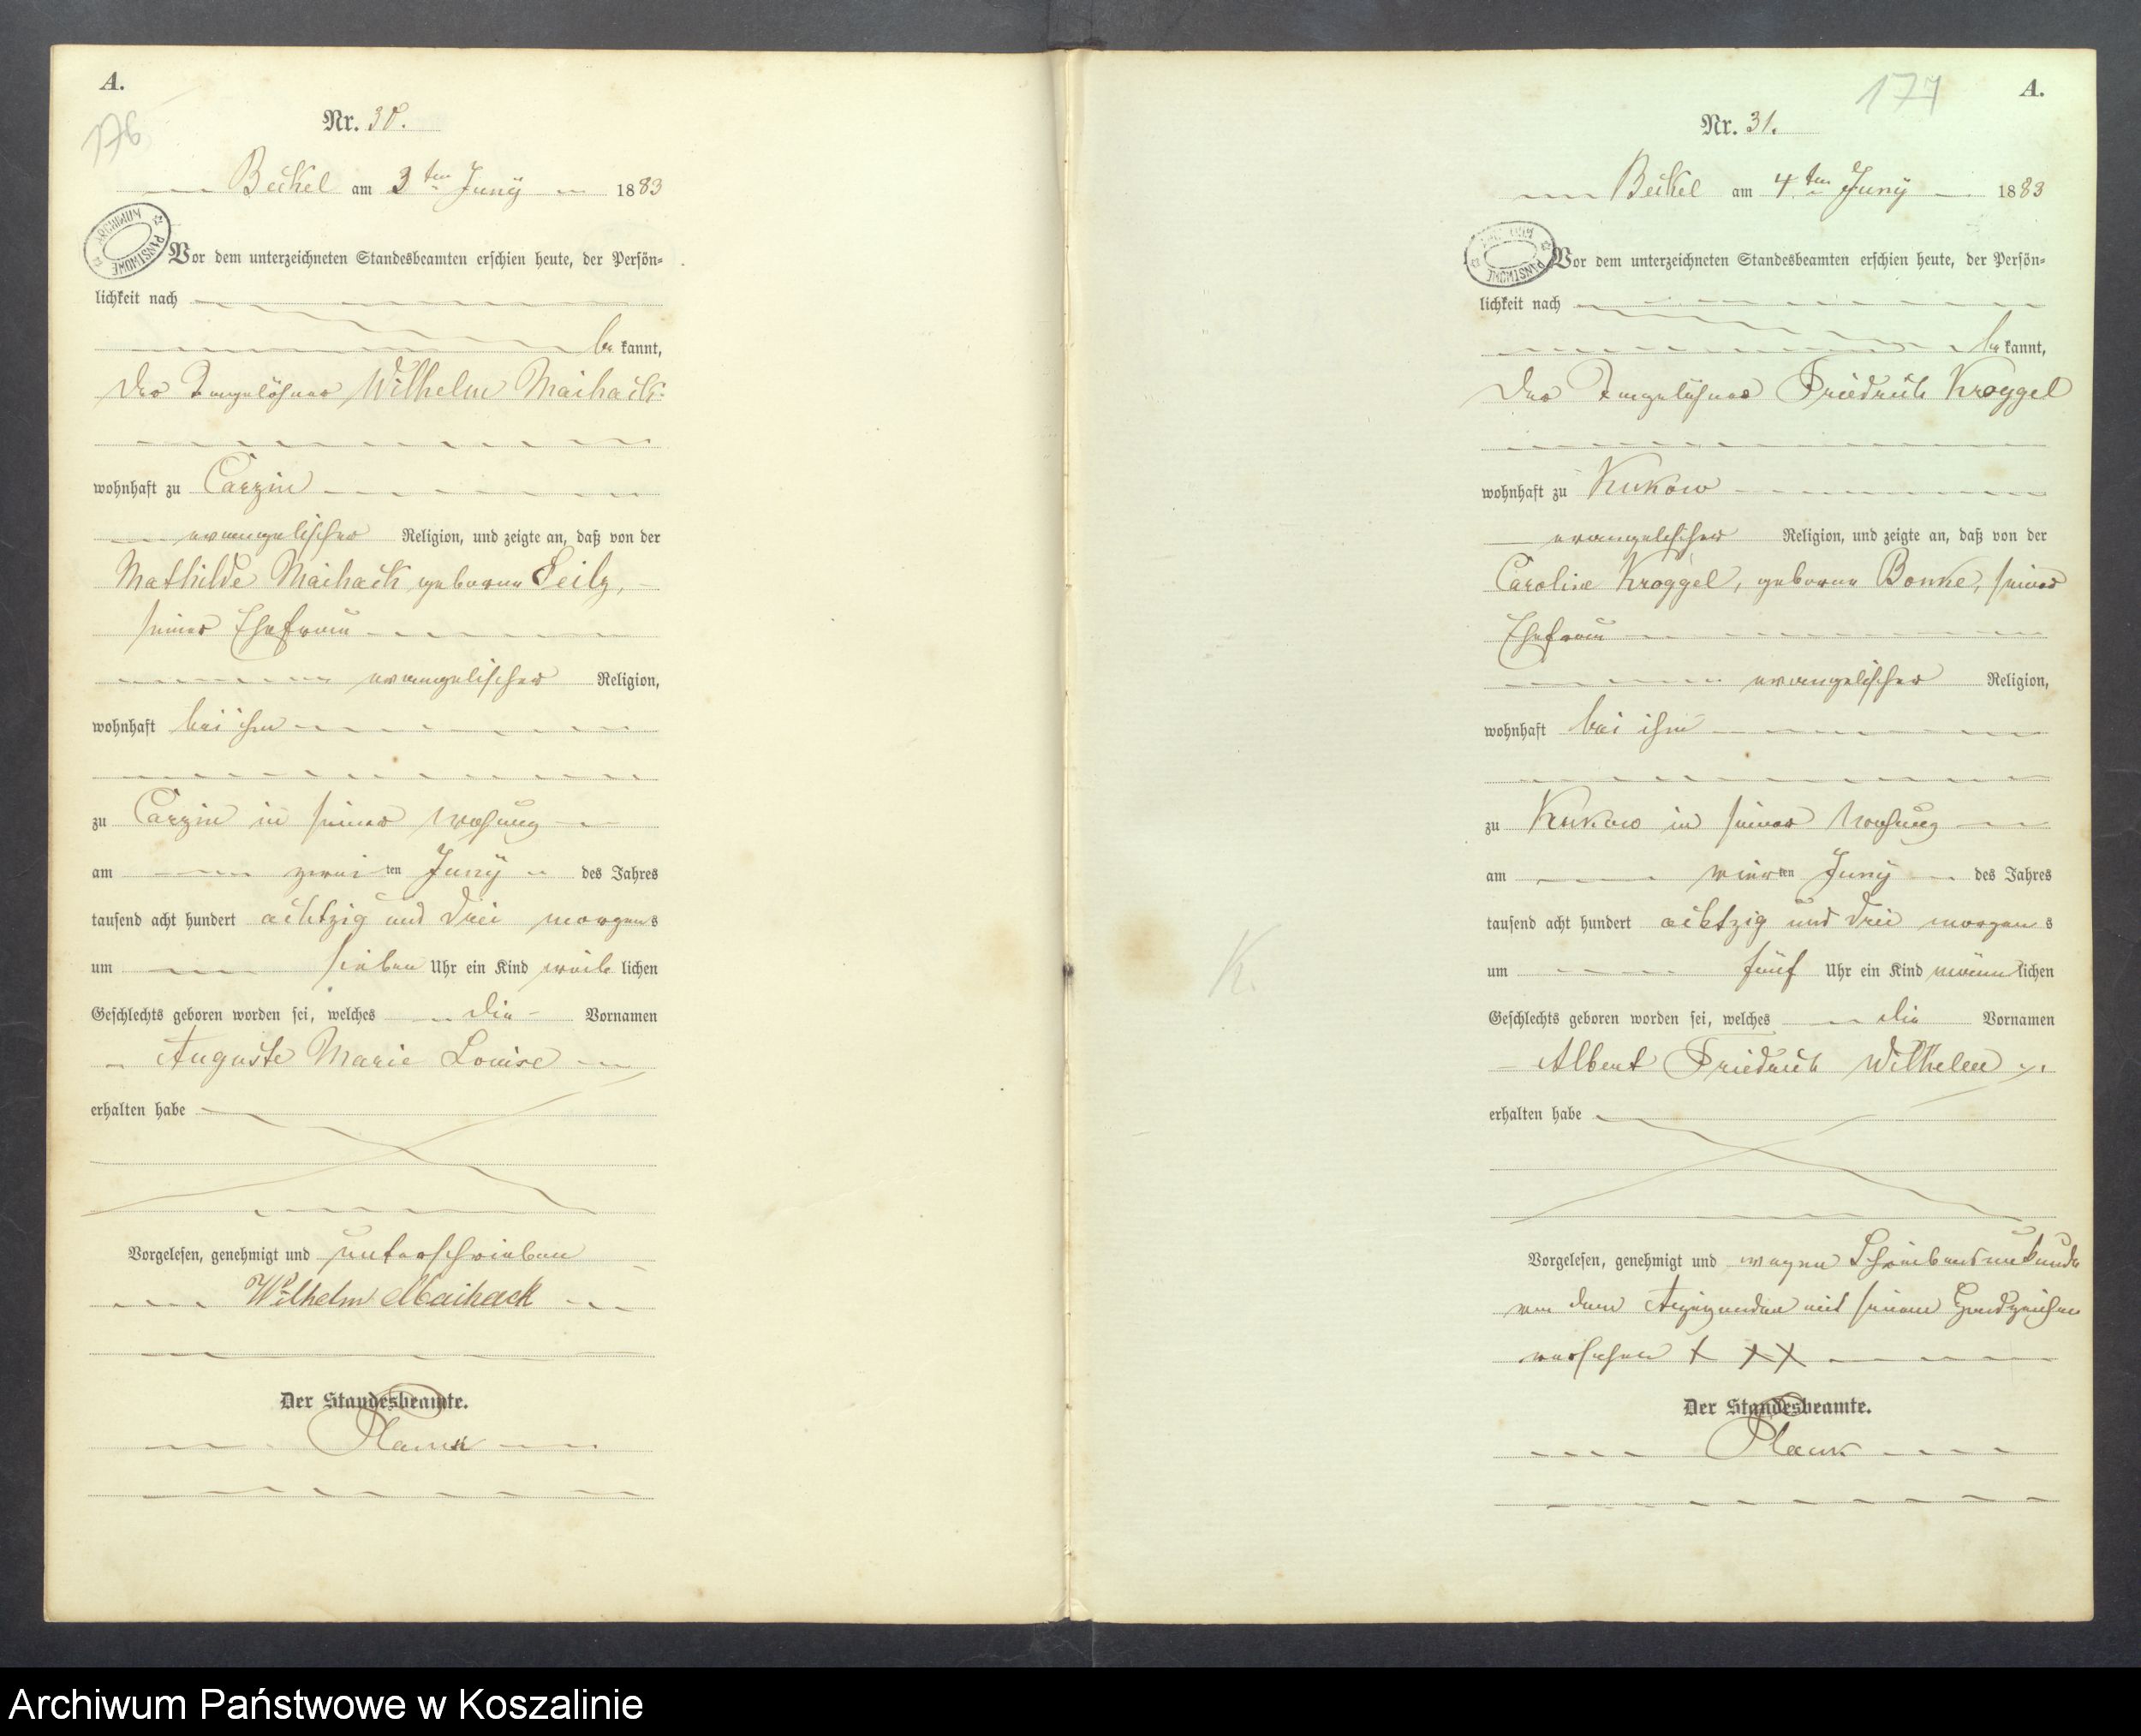 A.
176
Nr. 30.
Beckel am 3ten Juny 1883
ARCHIWUM PAŃSTWOWE
Vor dem unterzeichneten Standesbeamten erschien heute, der Persön-
lichkeit nach
be kannt,
der Tagelöhner Wilhelm Maihack
wohnhaft zu Carzin
evangelischer Religion, und zeigte an, daß von der
Mathilde Maihack geborne
seiner Ehefrau
evangelischer Religion,
wohnhaft bei ihm
zu Carzin in seiner Wohnung
am zwei ten Juny des Jahres
tausend acht hundert achtzig und drei morgen s
um sieben Uhr ein Kind weib lichen
Geschlechts geboren worden sei, welches die Vornamen
Auguste Marie Louise
erhalten habe
Vorgelesen, genehmigt und unterschrieben
Wilhelm Maihack
Der Standesbeamte.
177
A.
Nr. 31.
Beckel am 4ten Juny 1883
ARCHIWUM PAŃSTWOWE
Vor dem unterzeichneten Standesbeamten erschien heute, der Persön-
lichkeit nach
be kannt,
der Tagelöhner Friedrich Kroggel
wohnhaft zu Kukow
evangelischer Religion, und zeigte an, daß von der
Caroline Kroggel, geborne Bonke, seiner
Ehefrau
evangelischer Religion,
wohnhaft bei ihm
zu Kukow in seiner Wohnung
am vier ten Juny des Jahres
tausend acht hundert achtzig und drei morgen s
um fünf Uhr ein Kind männ lichen
K.
Geschlechts geboren worden sei, welches die Vornamen
Albert Friedrich Wilhelm
erhalten habe
Vorgelesen, genehmigt und wegen Schreibensunkunde
von dem Anzeigenden mit seinem Handzeichen
versehen + ++
Der Standesbeamte.
Archiwum Państwowe w Koszalinie